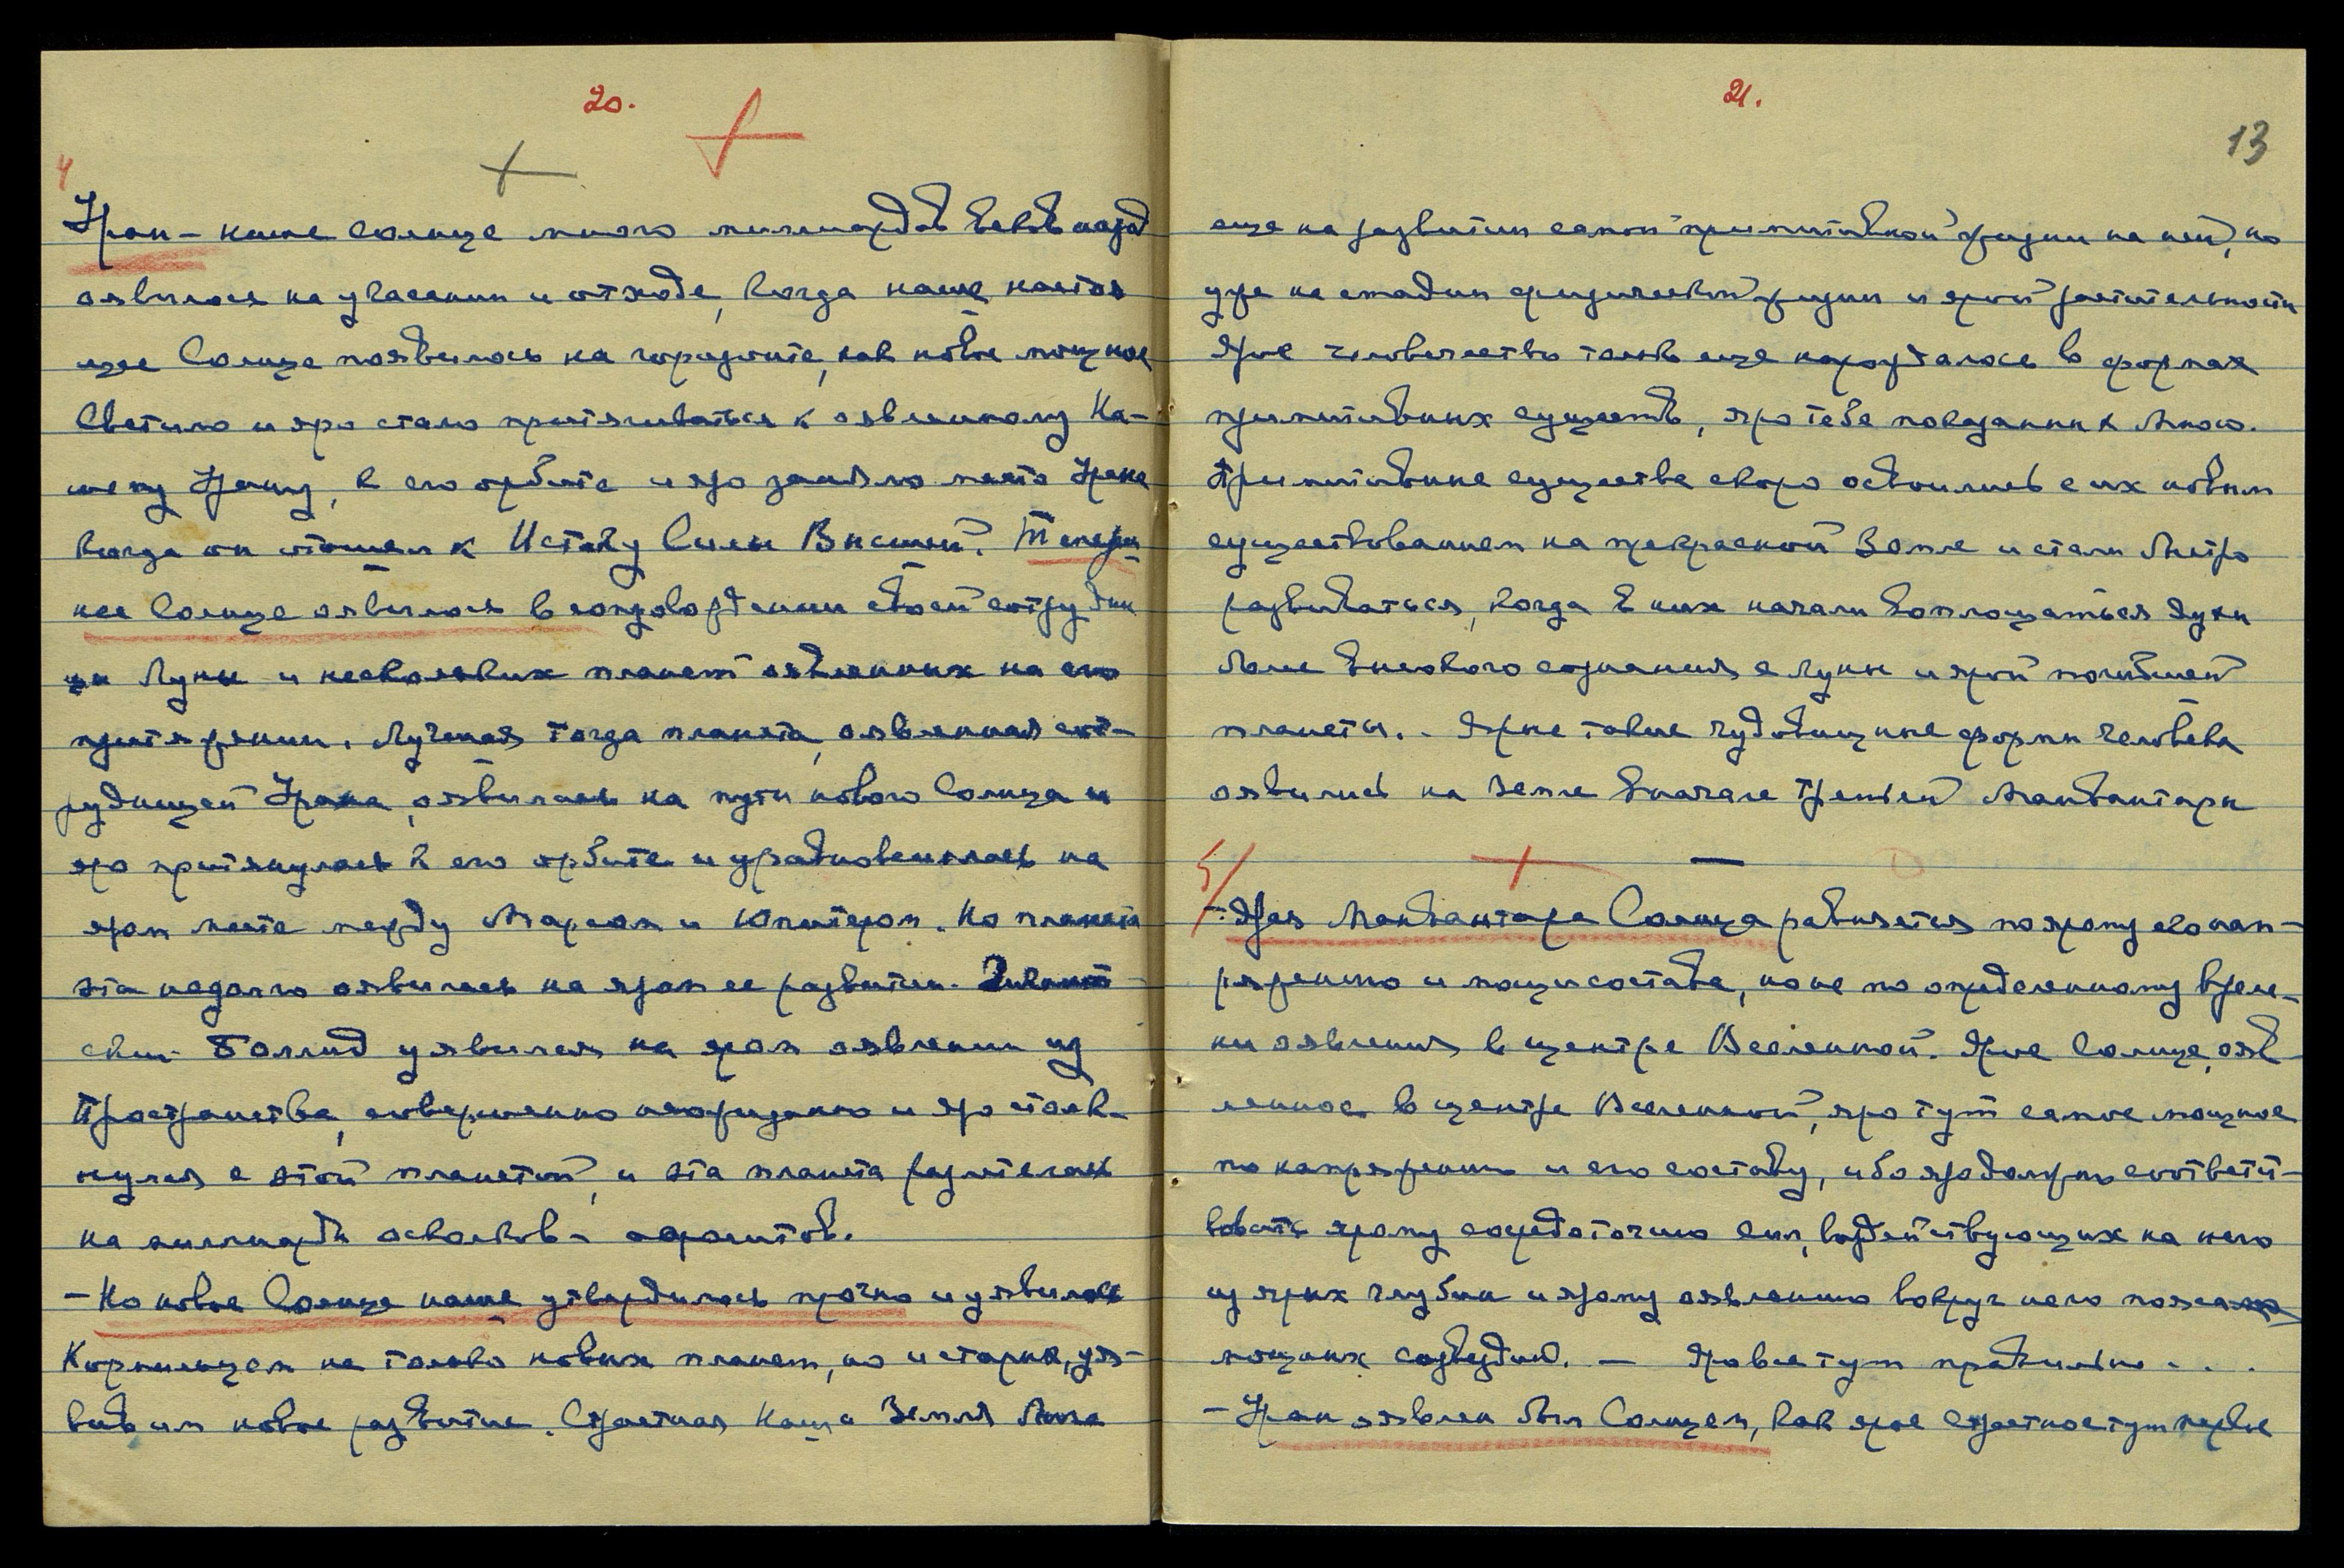 20.
4
Уран – наше Солнце много миллиардов веков назад
оявилось на угасании и отходе, когда наше настоя
щее Солнце появилось на горизонте, как новое мощное
Светило и яро стало притягиваться к оявленному На-
шему Урану, к его орбите и яро заняло место Урана
когда он отошел к Истоку Силы Высшей. Тепереш
нее Солнце оявилось в сопровождении своей сотрудни
цы Луны и нескольких планет оявленных на его
притяжении. Лучшая тогда планета, оявленная сот-
рудницей Урана, оявилась на пути нового Солнца и
яро притянулась к его орбите и уравновесилась на
яром месте между Марсом и Юпитером. Но планета
эта недолго оявилась на яром ее развитии. Гигант-
ский Боллид уявился на яром оявлении из
Пространства, совершенно неожиданно и яро столк-
нулся с этой планетой, и эта планета разлетелась
на миллиарды осколков – аэролитов.
– Но новое Солнце наше утвердилось прочно и уявилось
Кормильцем не только новых планет, но и старых, уяв-
вив им новое развитие. Страстная Наша Земля была
21.
13
еще на развитии самой примитивной физики на ней, но
уже на стадии физической жизни и ярой растительности
Ярое человечество только еще нарождалось в формах
примитивных существ, яро тебе показанных Мною.
Примитивные существа скоро освоились с их новым
существованием на прекрасной Земле и стали быстро
развиваться, когда в них начали воплощаться духи
более высокого сознания с Луны и ярой погибшей
планеты. – Ярые такие чудовищные формы человека
оявились на Земле вначале Третьей Манвантары
—
5/
– Ярая Манвантара Солнца равняется по ярому его нап-
ряжению и мощи состава, но не по определенному време-
ни оявления в центре Вселенной. Ярое Солнце, ояв
ленное в центре Вселенной, яро тут самое мощное
по напряжению и его составу, ибо яро должно соответст-
вовать ярому средоточию сил, воздействующих на него
из ярых глубин и ярому оявлению вокруг него пояса
мощных созвездий. – Яро все тут правильно . . .
– Уран оявлен был Солнцем, как ярое страстное тут первое